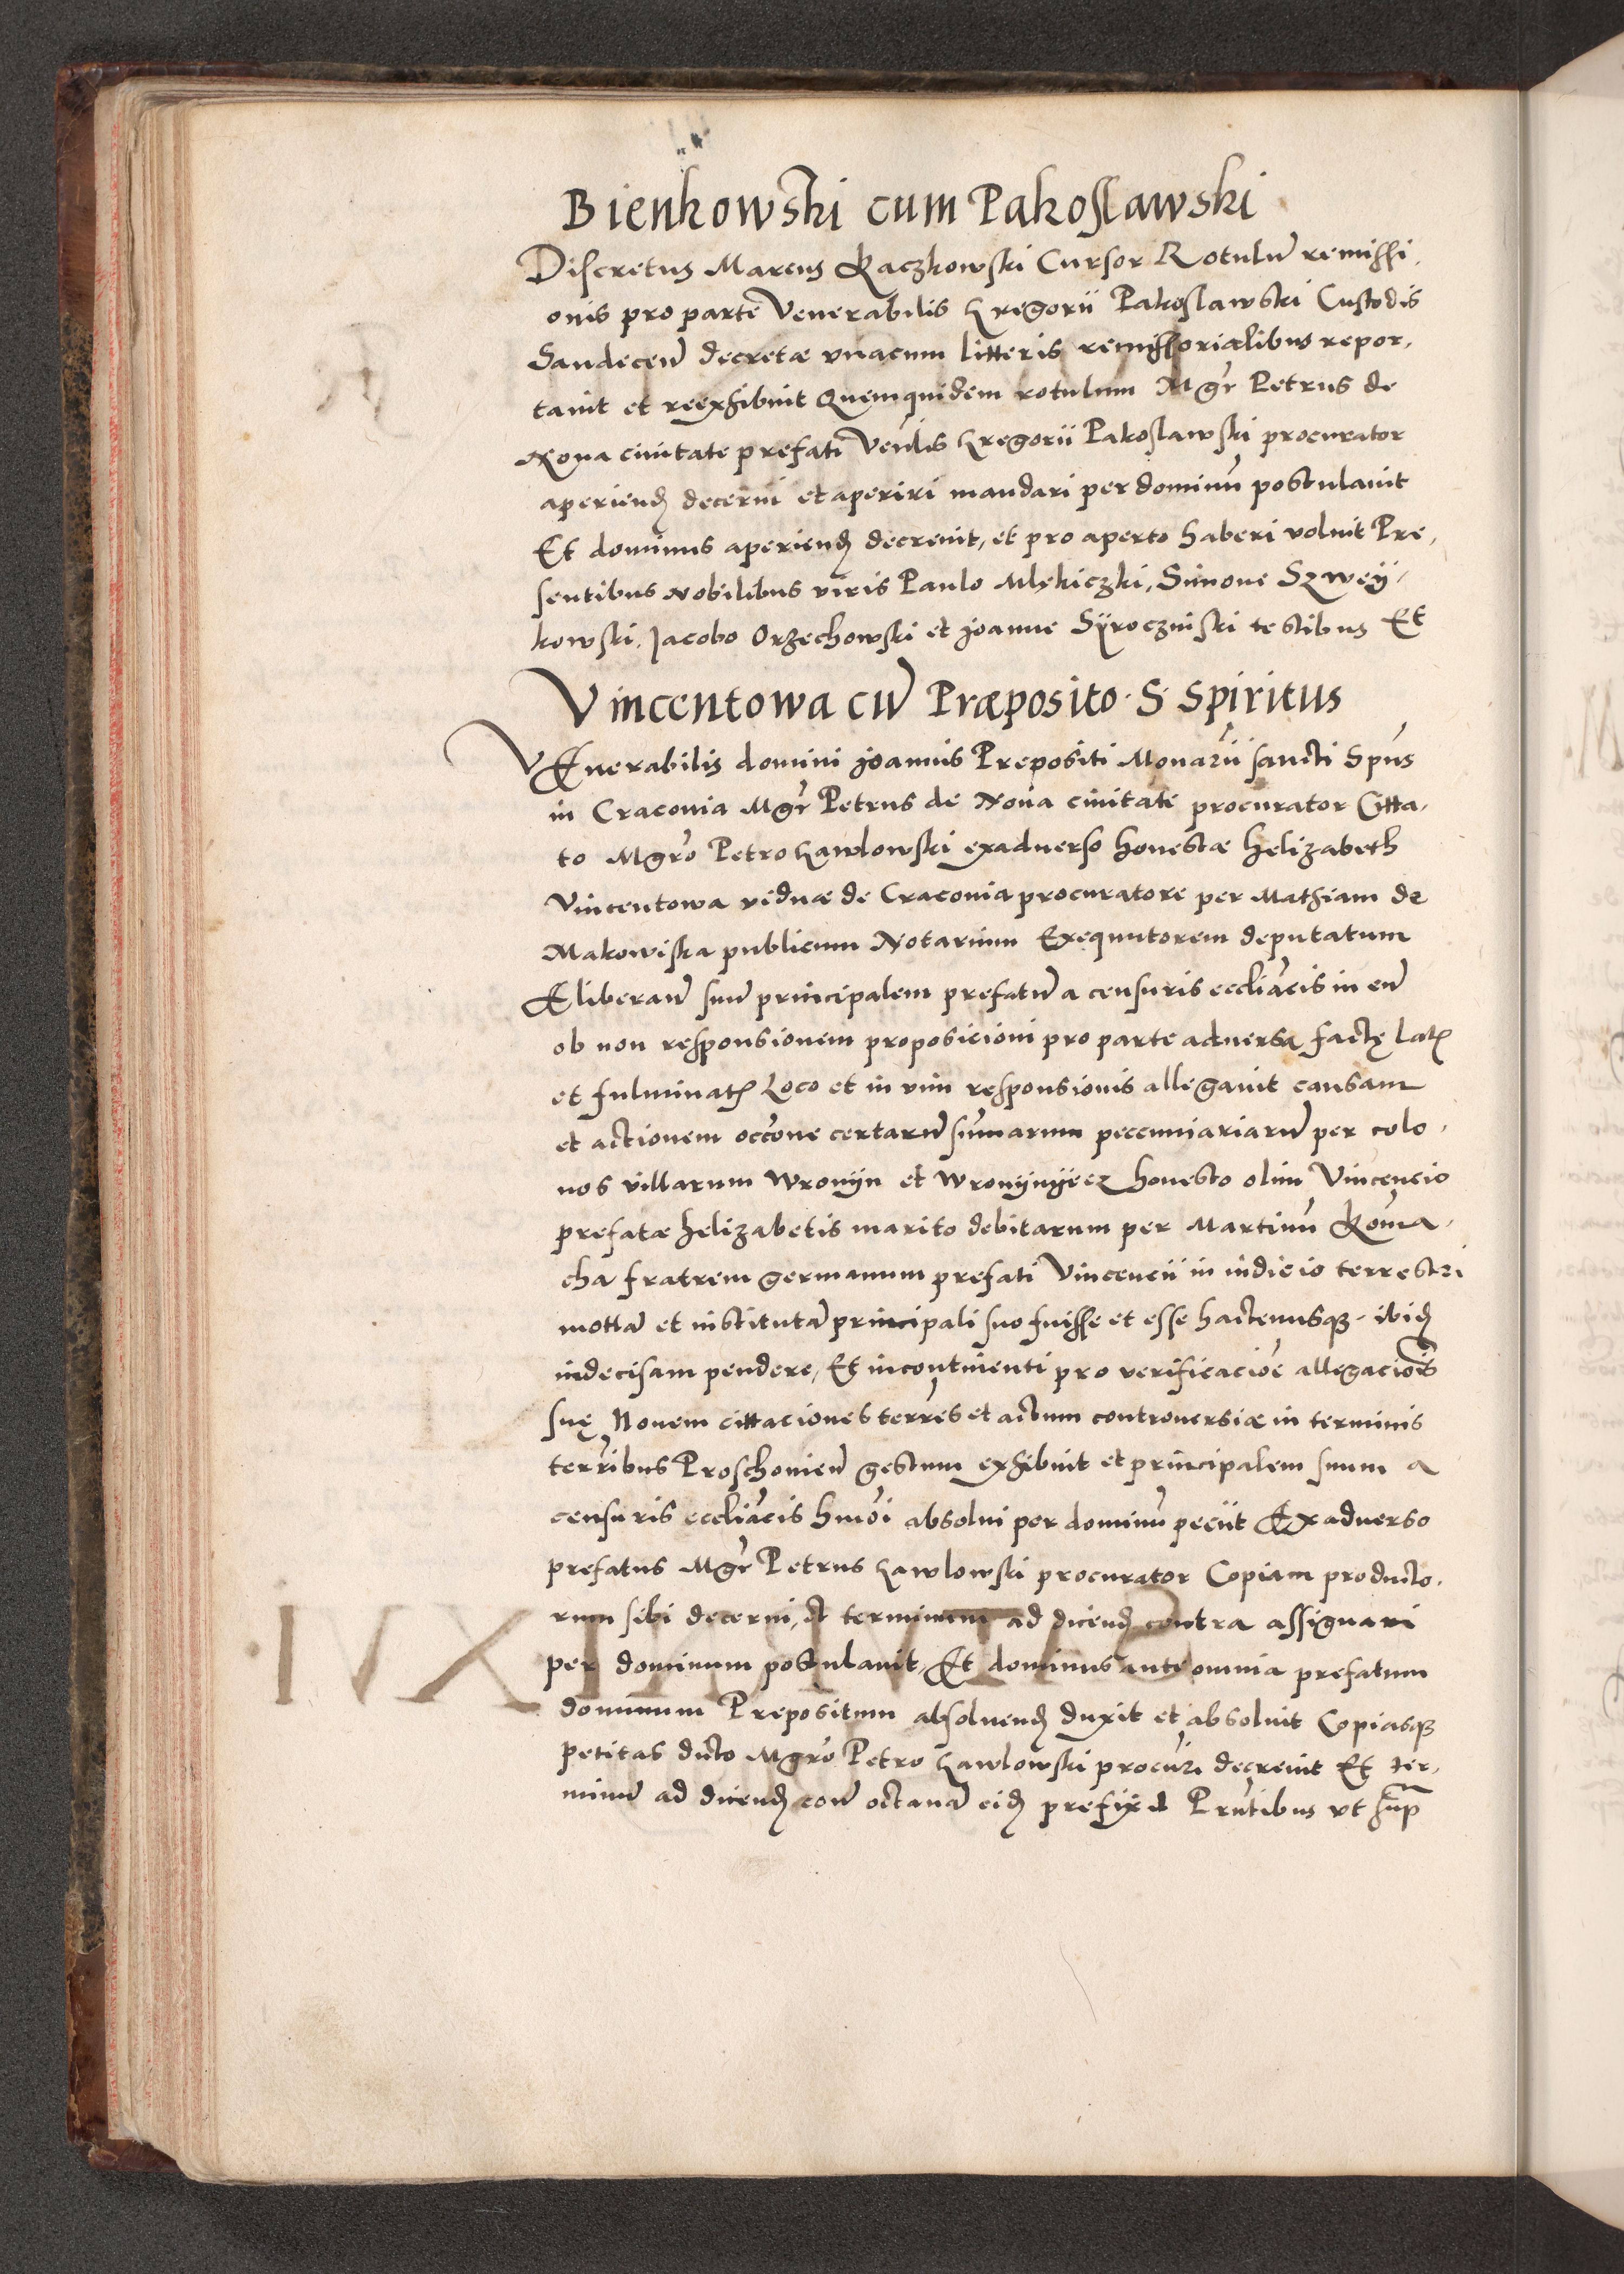 Bienkowski cum Pakoslawski
Discretus Marcus Raczkowski Cursor Rotulũ remissi,
onis pro parte Venerabilis Gregorii Pakoslawski Custodis
Sandeceñ decretæ vnacum litteris remissorialibus repor,
tauit et reexhibuit Quemquidem rotulum Mgr̃ Petrus de
Noua ciuitate prefati Veñlis Gregorii Pakoslawski procurator
aperiend̃ decerni et aperiri mandari per dominũ postulauit
Et dominus aperiend̃ decreuit, et pro aperto haberi voluit Pre,
sentibus Nobilibus viris Paulo Mlekiczki, Simone Szweÿ,
kowski. Jacobo Orzechowski et Joanne Sÿroczniski testibus Et
Vincentowa cũ Præposito . S . Spiritus
VEnerabilis domini Joannis Prepositi Monar̃ii sancti Spũs
in Craconia Mgr̃ Petrus de Noua ciuitate procurator Citta,
to Mgrõ Petro Gawlowski exaduerso honestæ Helizabeth
Vincentowa viduæ de Craconia procuratore per Mathiam de
Makowiska publicum Notarium Exequutorem deputatum
Eliberañ suũ principalem prefatũ a censuris eccliãcis in eũ
ob non responsionem proposicioni pro parte aduersa factę lat̃
et fulminat̃ Loco et in vim responsionis allegauit causam
et actionem occõne certarũ sum̃arum peccuniariarũ per colo,
nos villarum Wronÿn et Wronÿnÿecz honesto olim Vincencio
prefatæ helizabetis marito debitarum per Martinũ Kom̃a,
cha fratrem germanum prefati Vincencii in iudicio terrestri
mottã et institutã principali suo fuisse et esse hactenusq̃. ibid̃
indecisam pendere, Et incontinenti pro verificaciõe allegaciõis
suę Nouem cittaciones terr̃es et actum controuersiæ in terminis
terr̃ibus Proschouieñ gestum exhibuit et principalem suum a
censuris eccliãcis hmõi absolui per dominũ peciit Exaduerso
prefatus Mgr̃ Petrus Gawlowski procurator Copiam producto,
rum sibi decerni, et terminum ad dicend̃ contra assignari
per dominum postulauit, Et dominus ante omnia prefatum
dominum Prepositum absoluend̃ duxit et absoluit Copiasq̃
petitas dicto Mgrõ Petro Gawlowski procũri decreuit Et ter,
minũ ad dicend̃ coñ octauã eid̃ prefixit Prñtibus vt sup̃